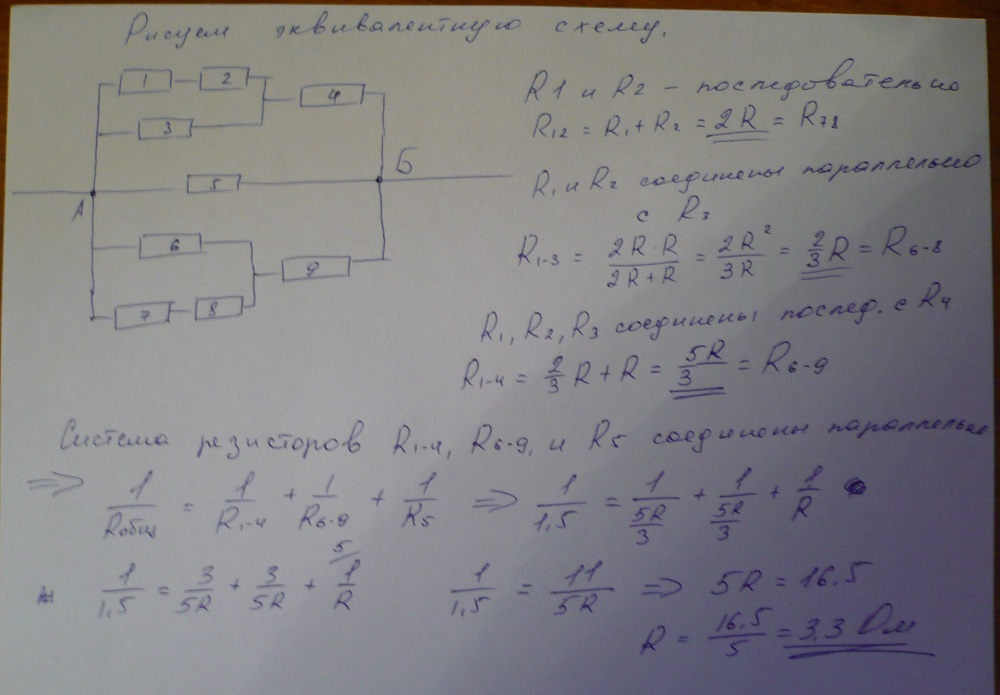 Рисуем эквивалентную схему.
1 2 4
3
5
А Б
6
9
7 8
R1 и R2 – последовательно
R12 = R1 + R2 = 2R = R78
R1 и R2 соединены параллельно
с R3
R1-3 = 2R·R/2R+R = 2R²/3R = 2/3 R = R6-8
R1, R2, R3 соединены послед. с R4
R1-4 = 2/3 R + R = 5R/3 = R6-9
Система резисторов R1-4, R6-9, и R5 соединены параллельно
=> 1/Rобщ = 1/R1-4 + 1/R6-9 + 1/R5 => 1/1,5 = 1/(5R/3) + 1/(5R/3) + 1/R
1/1,5 = 3/5R + 3/5R + 1/R 5/ 1/1,5 = 11/5R => 5R = 16.5
R = 16.5/5 = 3.3 Ом